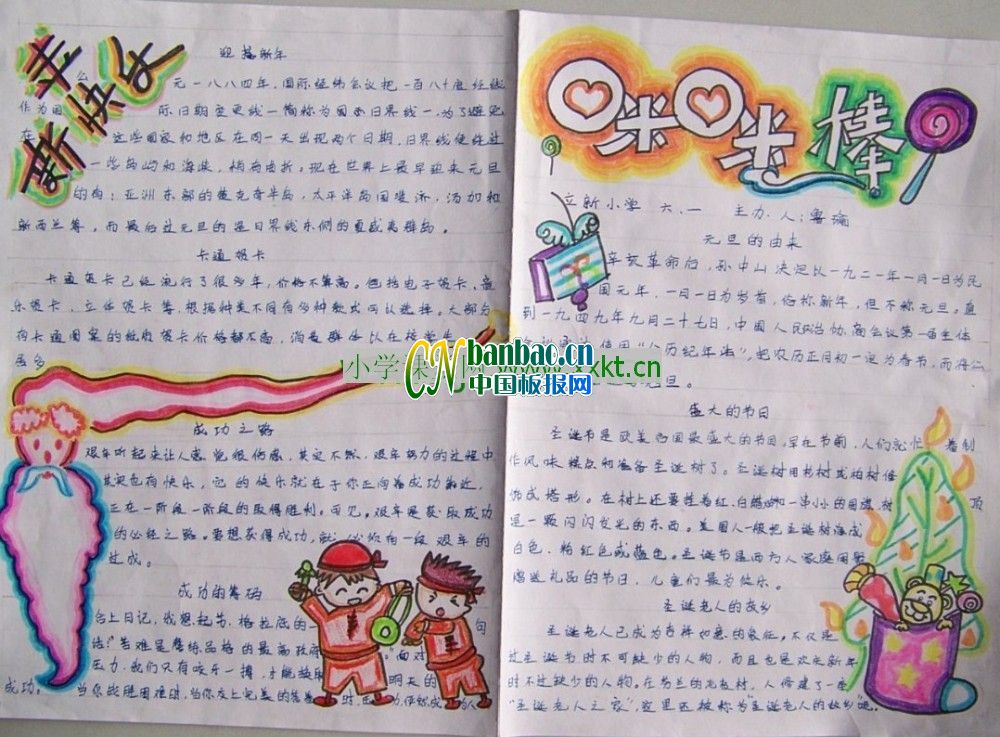 新年快乐
迎接新年
元一八八四年，国际经纬会议把一百八十度经线
作为国际日期变更线一简称为国办日界线一，为了避免
在这些国家和地区在同一天出现两个日期，日界线使经过
一些岛屿和海峡，稍有曲折。现在世界上最早迎来元旦
的有：亚洲东部的楚克奇半岛，太平洋岛国斐济，汤加和
新西兰等，而最后过元旦的是日界线东侧的夏威夷群岛。
卡通贺卡
卡通贺卡已经流行了很多年，价格不算高。包括电子贺卡、音
乐贺卡、立体贺卡等，根据种类不同有多种款式可以选择。大部分
的卡通图案的纸质贺卡价格都不高，消费群体以在校学生
居多
成功之路
艰辛听起来让人感觉很伤感，其实不然，艰辛努力的过程中
其实也有快乐，它的快乐就在于你正向着成功靠近，
正在一阶段一阶段的取得胜利。可见，艰辛是获取成功
的必经之路。要想获得成功，就必须有一段艰辛的
过成。
成功的筹码
合上日记，我想起苏格拉底的一句
话：“苦难是磨练品格的最高政府”面对
压力，我们只有咬牙一搏，才能放明天的
成功。当你战胜困难时，当你交上完美的答卷时，
咪咪棒
立新小学 六、一 主办人：鲁瑜
元旦的由来
辛亥革命后，孙中山决定以一九二一年一月一日为民
国元年，一月一日为岁首，俗称新年，但不称元旦。直
到一九四九年九月二十七日，中国人民政治协商会议第一届全体
使用“公历纪年法”，把农历正月初一定为春节，而将公
元旦。
盛大的节日
圣诞节是欧美各国最盛大的节日，早在节前，人们就忙着制
作风味糕点和准备圣诞树了。圣诞树用杉树或柏树修
饰成塔形。在树上还要挂着红、白蜡烛和一串小的国旗，树顶
是一颗闪闪发光的东西。美国人一般把圣诞树漆成
白色、粉红色或蓝色。圣诞节是西方人家庭团聚
赠送礼品的节日，儿童们最为快乐。
圣诞老人的故乡
圣诞老人已成为吉祥如意的象征。不仅是
过圣诞节时不可缺少的人物，而且也是欢庆新年
时不过缺少的人物。在芬兰的北极村，人修建了一座
“圣诞老人之家”，这里还被称为圣诞老人的故乡呢。
小学课 网 www.xxkt.cn
CN banbao.cn
中国板报网